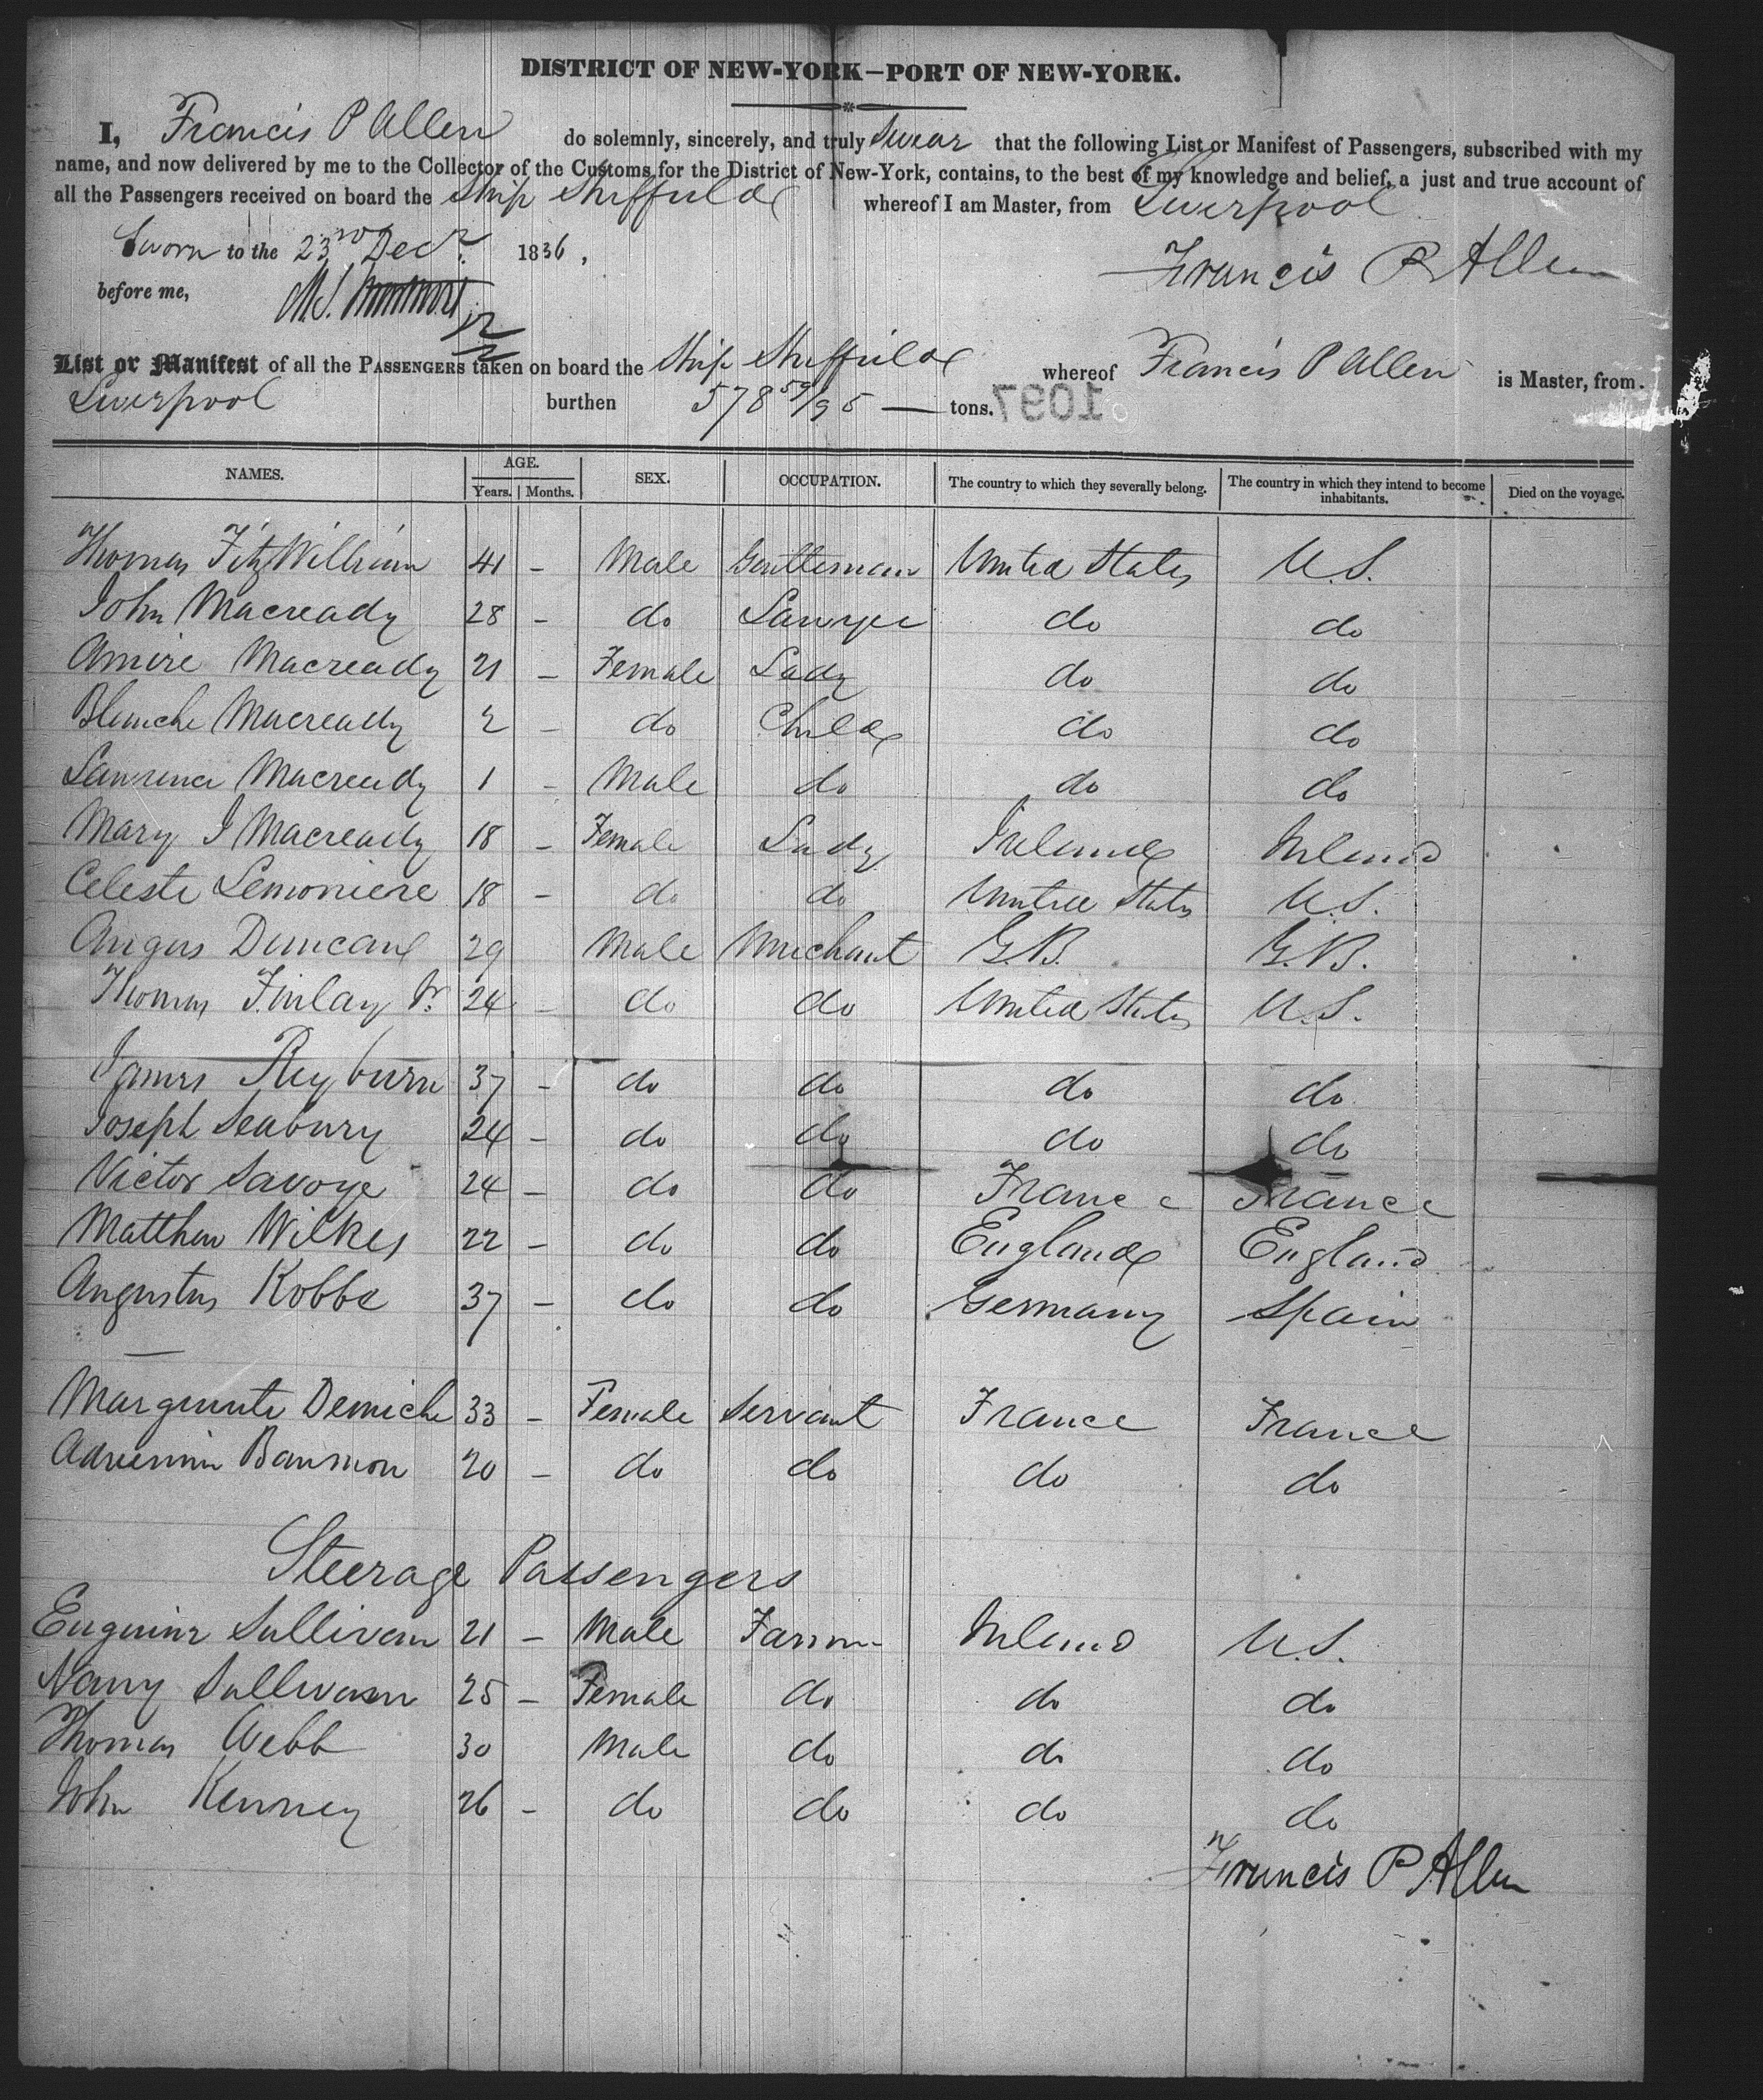 DISTRICT OF NEW-YORK—PORT OF NEW-YORK.
I, Francis P Allen do solemnly, sincerely, and truly Swear that the following List or Manifest of Passengers, subscribed with my
name, and now delivered by me to the Collector of the Customs for the District of New-York, contains, to the best of my knowledge and belief, a just and true account of
all the Passengers received on board the Ship Sheffield whereof I am Master, from Liverpool
Sworn to the 23rd Decr. 1836,
Francis P Allen
before me,
List or Manifest of all the PASSENGERS taken on board the Ship Sheffield whereof Francis P Allen is Master, from
Liverpool burthen 578 59/95 — tons. 1097
NAMES. AGE. Years. Months. SEX. OCCUPATION. The country to which they severally belong. The country in which they intend to become inhabitants. Died on the voyage.
Thomas FitzWilliam 41 - Male Gentleman United States U.S.
John Macready 28 - do Lawyer do do
Macready 21 - Female Lady do do
Blanche Macready 2 - do Child do do
Lawrence Macready 1 - Male do do do
Mary I Macready 18 - Female Lady Ireland Ireland
Celeste Lemoniere 18 - do do United States U.S.
Angus Duncan 29 Male Merchant G.B. G.B.
Thomas Finlay Jr. 24 - do do United States U.S.
James Reyburn 37 - do do do do
Joseph Seabury 24 - do do do do
Victor Savoye 24 - do do France France
Matthew Wilkes 22 - do do England England
Augustus Kobbe 37 - do do Germany Spain
Marguerite 33 - Female Servant France France
20 - do do do do
Steerage Passengers
Sullivan 21 - Male Farmer Ireland U.S.
Sullivan 25 - Female do do do
Thomas Webb 30 Male do do do
John Kenney 26 - do do do do
Francis P Allen